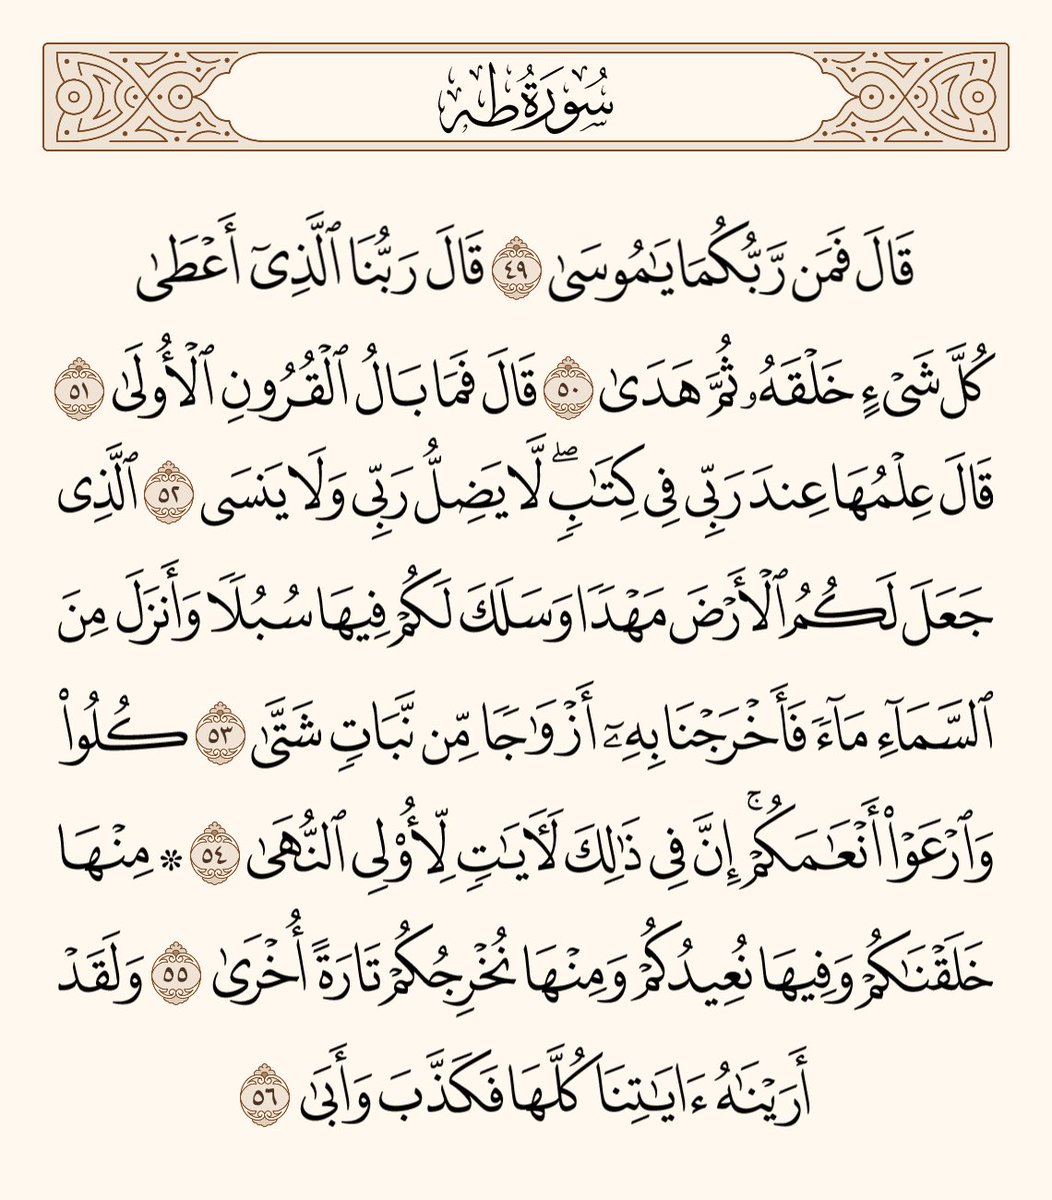 سُورَةُ طه
قَالَ فَمَن رَّبُّكُمَا يَٰمُوسَىٰ ٤٩ قَالَ رَبُّنَا ٱلَّذِىٓ أَعْطَىٰ
كُلَّ شَىْءٍ خَلْقَهُۥ ثُمَّ هَدَىٰ ٥٠ قَالَ فَمَا بَالُ ٱلْقُرُونِ ٱلْأُولَىٰ ٥١
قَالَ عِلْمُهَا عِندَ رَبِّى فِى كِتَٰبٍۢ ۖ لَّا يَضِلُّ رَبِّى وَلَا يَنسَى ٥٢ ٱلَّذِى
جَعَلَ لَكُمُ ٱلْأَرْضَ مَهْدًا وَسَلَكَ لَكُمْ فِيهَا سُبُلًا وَأَنزَلَ مِنَ
ٱلسَّمَآءِ مَآءً فَأَخْرَجْنَا بِهِۦٓ أَزْوَٰجًا مِّن نَّبَاتٍ شَتَّىٰ ٥٣ كُلُوا۟
وَٱرْعَوْا۟ أَنْعَٰمَكُمْ ۚ إِنَّ فِى ذَٰلِكَ لَـَٔايَٰتٍ لِّأُو۟لِى ٱلنُّهَىٰ ٥٤ * مِنْهَا
خَلَقْنَٰكُمْ وَفِيهَا نُعِيدُكُمْ وَمِنْهَا نُخْرِجُكُمْ تَارَةً أُخْرَىٰ ٥٥ وَلَقَدْ
أَرَيْنَٰهُ ءَايَٰتِنَا كُلَّهَا فَكَذَّبَ وَأَبَىٰ ٥٦